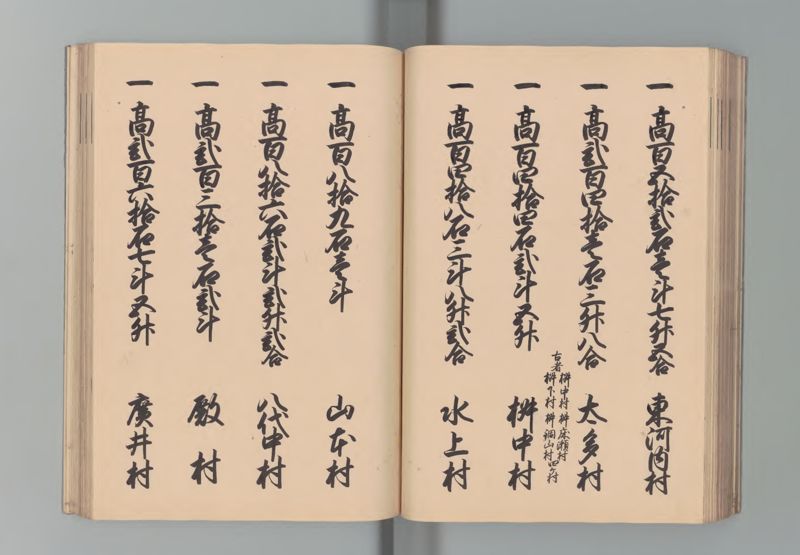 一 高百五拾弐石壱斗七升五合 東河内村
一 高弐百四拾壱石三升八合 太多村
古者 桝中村 桝床瀬村
桝下村 桝稠山村四ヶ村
一 高百四拾四石弐斗五升 桝中村
一 高百四拾八石三斗八升弐合 水上村
一 高百八拾九石壱斗 山本村
一 高百八拾六石弐斗弐升弐合 八代中村
一 高弐百三拾壱石弐斗 殿村
一 高弐百六拾石七斗五升 廣井村